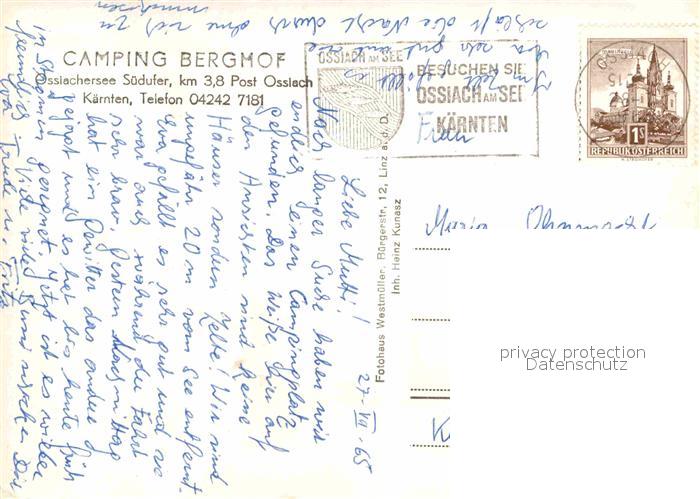 CAMPING BERGHOF
Ossiachersee Südufer, km 3,8 Post Ossiach
Kärnten, Telefon 04242 7181
OSSIACH AM SEE
BESUCHEN SIE
OSSIACH AM SEE
KÄRNTEN
OSSIACH
1S
REPUBLIK ÖSTERREICH
Fotohaus Westmüller, Bürgerstr. 12, Linz a. d. D.
Inh. Heinz Kunasz
Frau
Maria
K
privacy protection
Datenschutz
27. VII. 65
Liebe Mutti!
Nach langer Suche haben wir
endlich einen Campingplatz
gefunden. Das weiße hier auf
den Ansichten sind keine
Häuser sondern Zelte! Wir sind
ungefähr 20 m vom See entfernt.
Eva gefällt es sehr gut und sie
war auch während der Fahrt
sehr brav. Gestern Nachmittag
hat ein Gewitter das andere
gejagt und es hat bis heute früh
in Strömen geregnet. Jetzt ist es wieder
freundlich. Viele
Eva, Trude u. Fritz
Im Zelt gefällt es
schläft die Nacht durch ohne sich zu